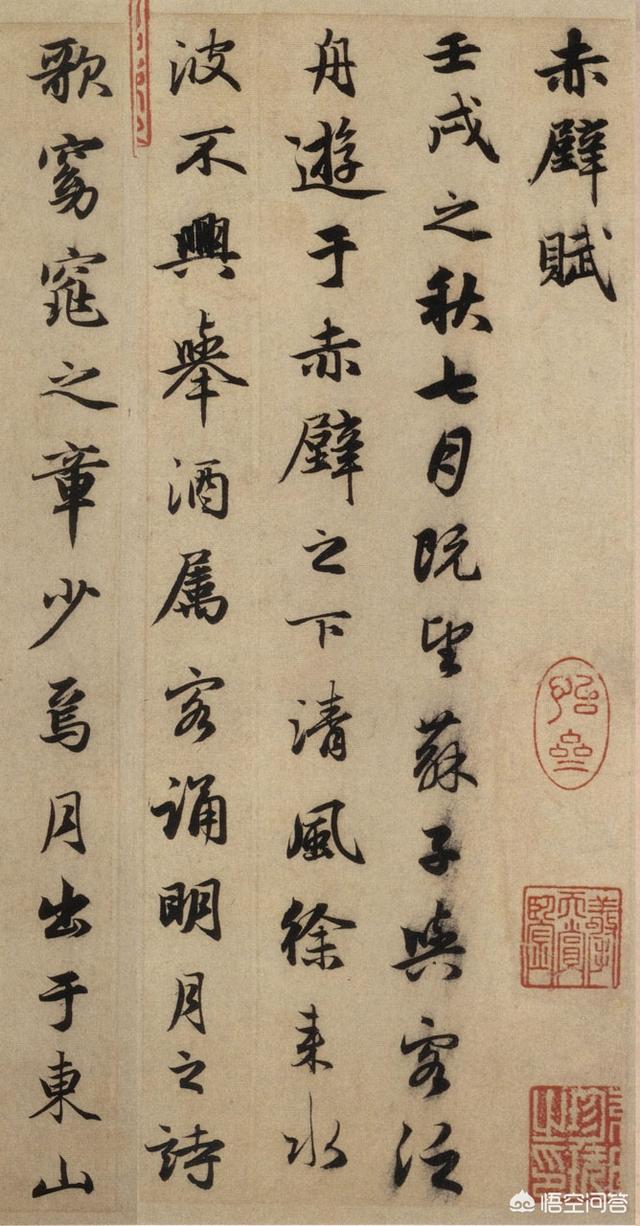 赤壁賦
壬戌之秋七月既望蘇子與客泛
舟遊于赤壁之下清風徐来水
波不興舉酒属客誦明月之詩
歌窈窕之章少焉月出于東山
悟空问答